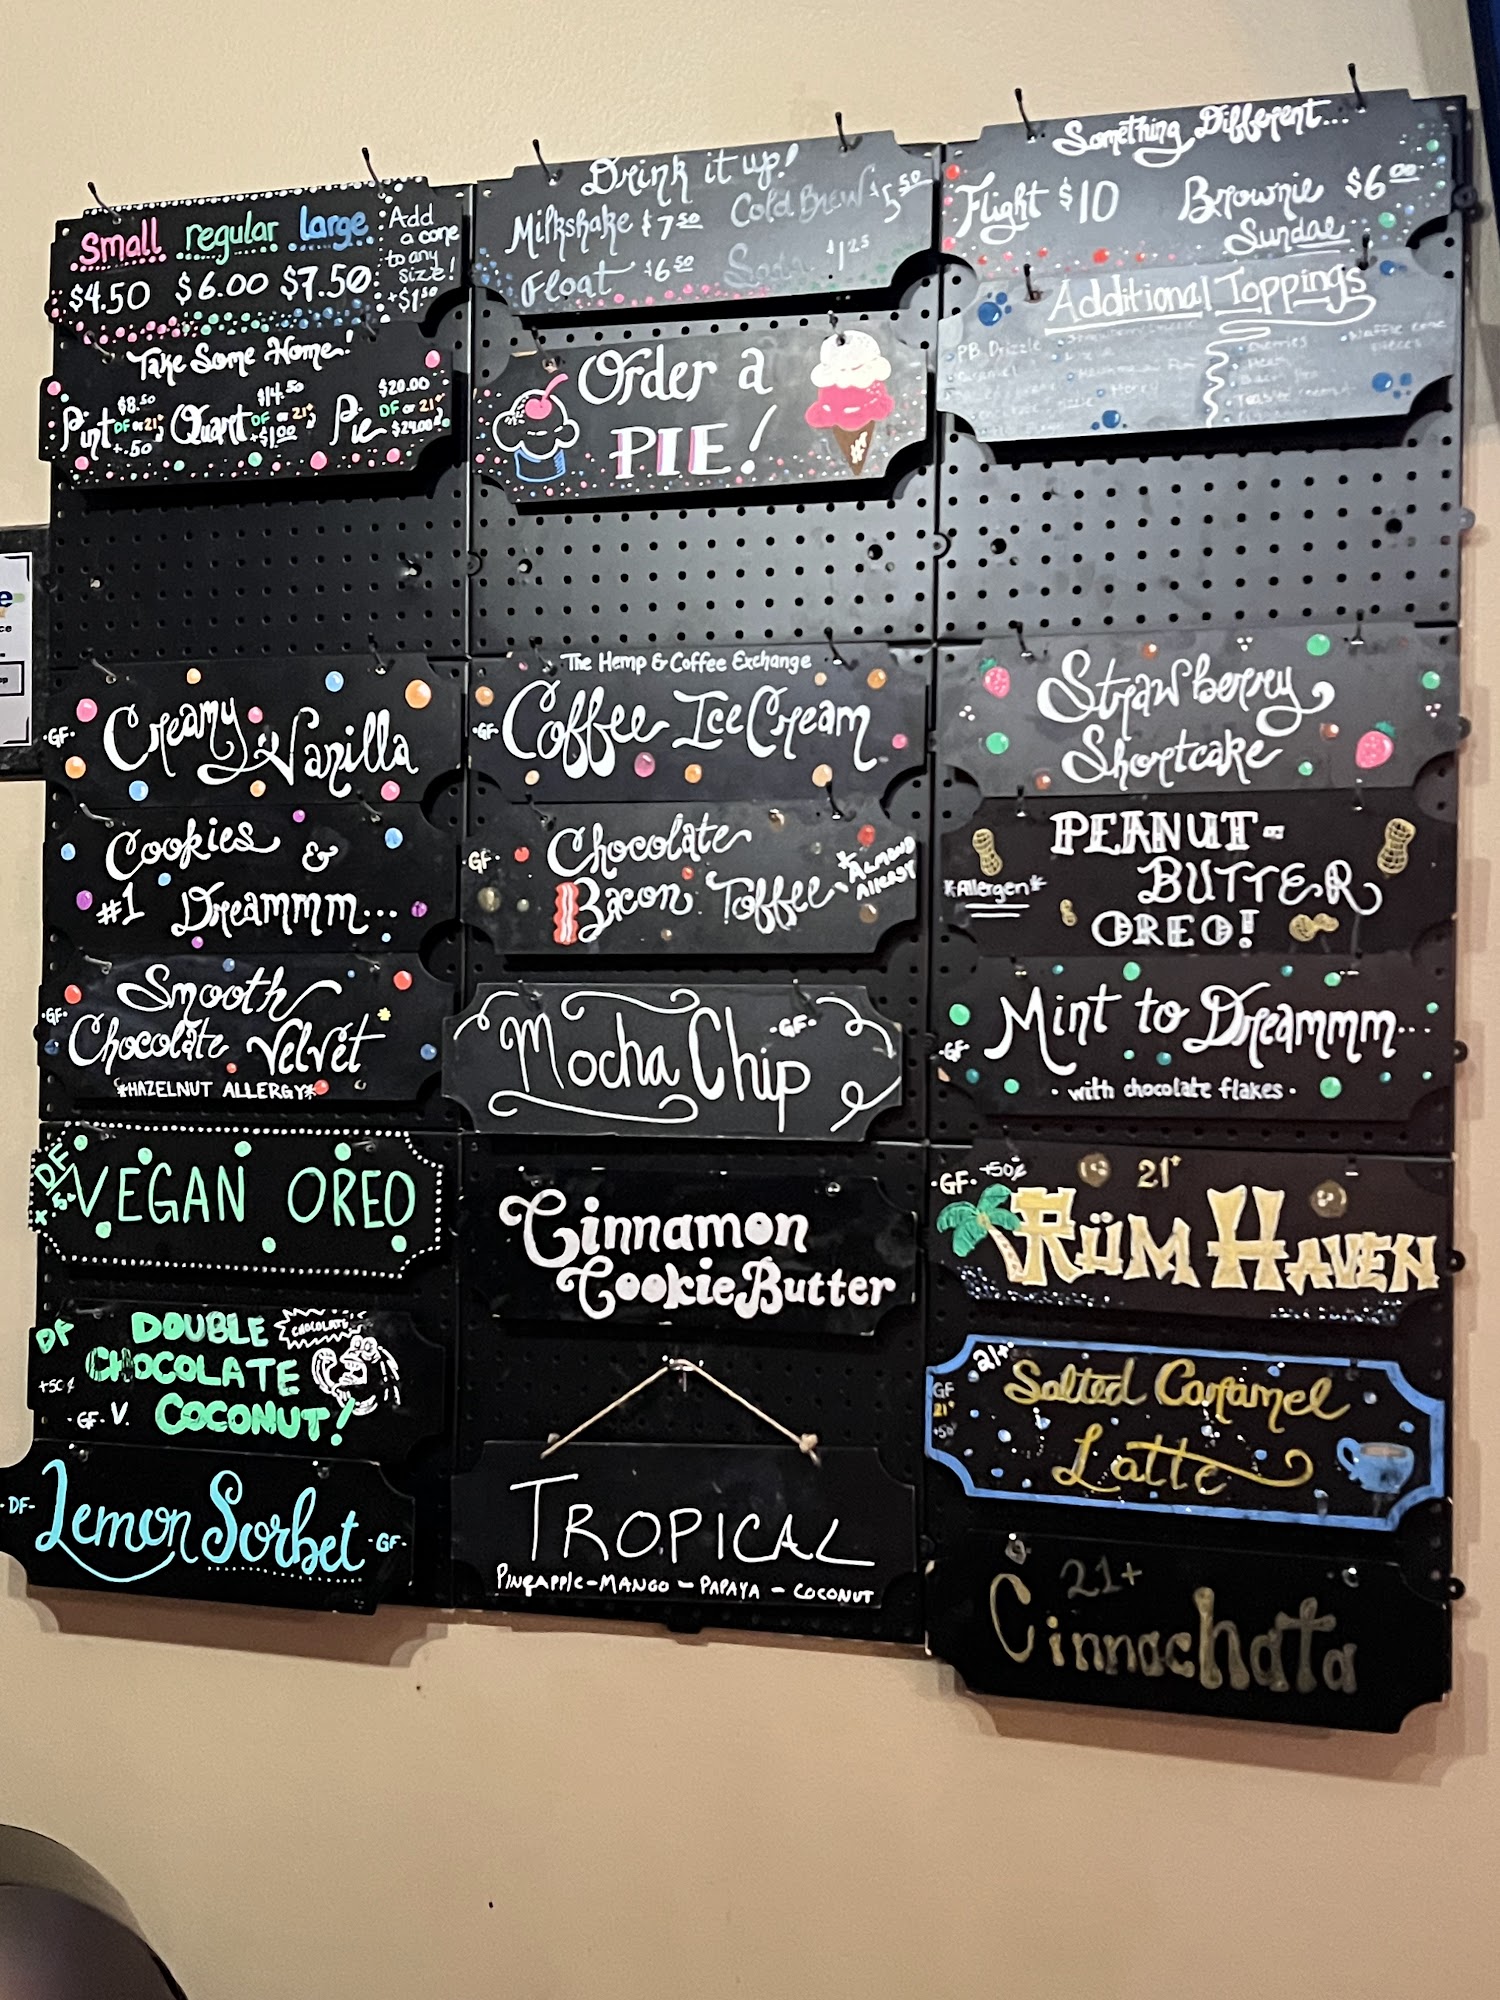 Small regular large
$4.50 $6.00 $7.50
Add
a cone
to any
size!
+$1.50
Take Some Home!
Pint $8.50 DF or 21+ +.50
Quart $14.50 DF or 21+ +$1.00
Pie $20.00 DF or 21+ $24.00
Drink it up!
Milkshake $7.50 Cold Brew $5.50
Float $6.50 Soda $1.25
Order a
PIE!
Something Different...
Flight $10 Brownie $6.00
Sundae
Additional Toppings
PB Drizzle
Caramel
Honey
Cherries
Waffle cone
pieces
-GF- Creamy Vanilla
Cookies &
#1 Dreammm...
Smooth
-GF- Chocolate Velvet
*HAZELNUT ALLERGY*
DF
VEGAN OREO
DF DOUBLE CHOCOLATE
CHOCOLATE
+50¢
-GF- V. COCONUT!
-DF- Lemon Sorbet -GF-
The Hemp & Coffee Exchange
-GF- Coffee Ice Cream
-GF- Chocolate
Bacon Toffee
*ALMOND
ALLERGY
Mocha Chip -GF-
Cinnamon
Cookie Butter
TROPICAL
PINEAPPLE-MANGO-PAPAYA-COCONUT
Strawberry
Shortcake
PEANUT-
*Allergen* BUTTER
OREO!
-GF- Mint to Dreammm...
- with chocolate flakes -
-GF- +50¢ 21+
RÜM HAVEN
21+
GF
21+
+50¢
Salted Caramel
Latte
21+
Cinnachata